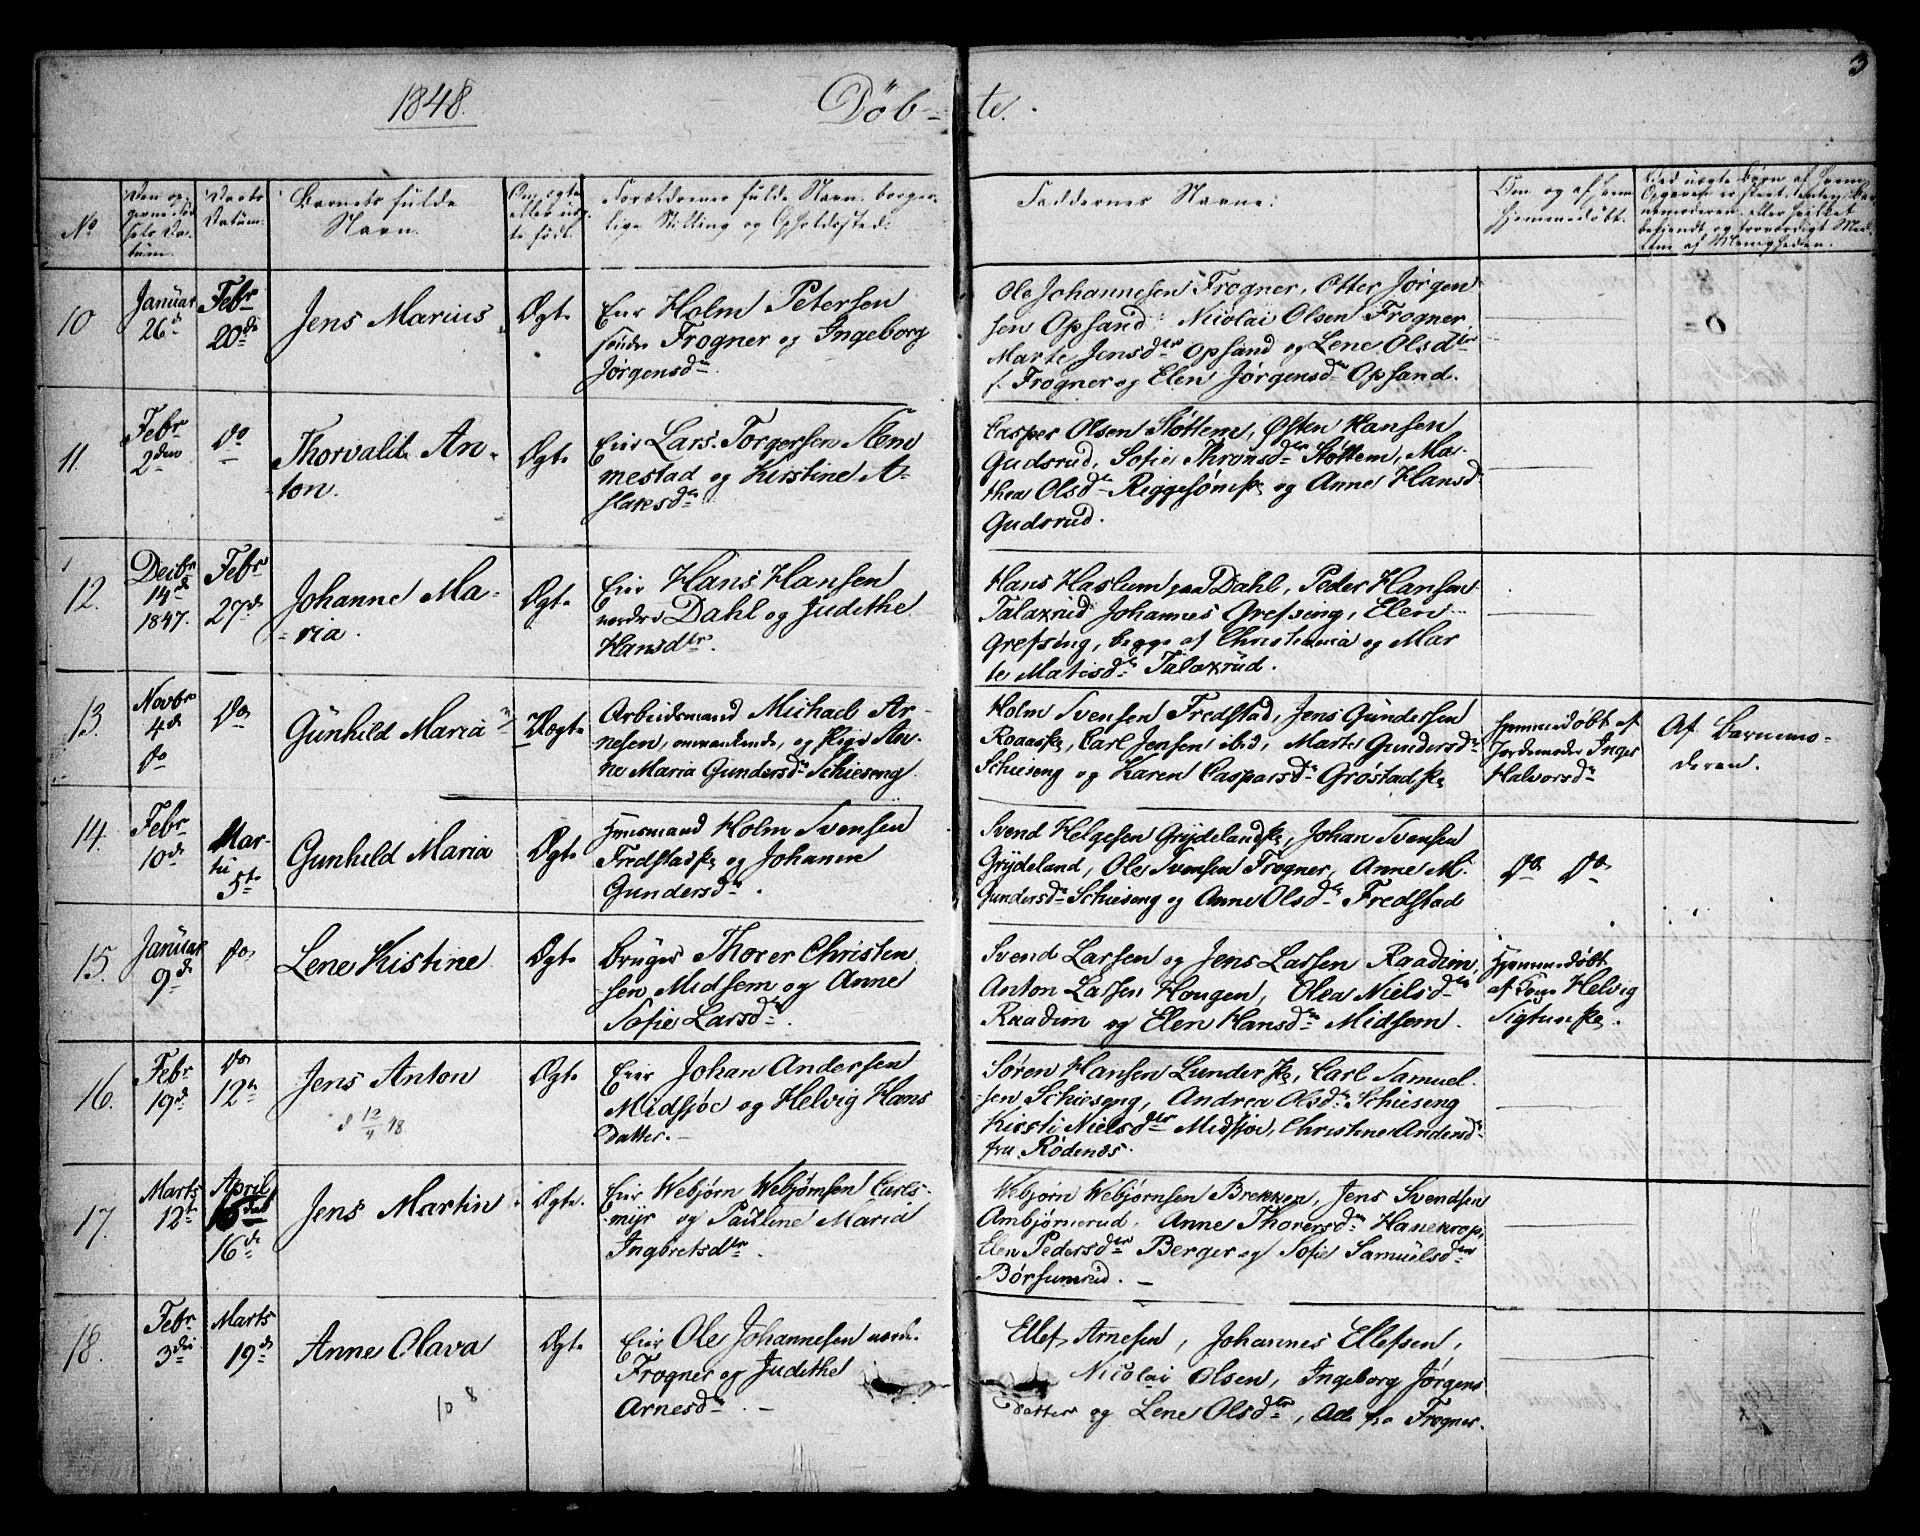 3
1848.
Döb- te.
No
Den op-
givne Fød-
sels Da-
tum.
Daabs
Datum.
Barnets fulde
Navn.
Om ægte
eller uæg-
te født.
Forældrenes fulde Navn, borger-
lige Stilling og Opholdssted:
Faddernes Navne:
Om og af hvem
hjemmedøbt.
Ved uægte Børn af hvem
Opgaven er skeet, enten Bar-
nemoderen eller hvilket
bekjendt og troværdigt Med-
lem af Menigheden.
10
Januar
26d
Febr
20de
Jens Marius
Ægte
Eier Holm Petersen
søndre Frogner og Ingeborg
Jørgensdtr
Ole Johannesen Frogner, Otter Jørgen
sen Opsand, Nicolai Olsen Frogner,
Marte Jensdtr Opsand og Lene Olsdtr
f. Frogner og Elen Jørgensdtr Opsand.
11.
Febr
2den
Do
Thorvald An-
-ton.
Ægte
Eier Lars Torgersen Flem
mestad og Kirstine A-
slaksdtr
Casper Olsen Støttem, Østen Hansen
Gudsrud, Sofie Thronsdtr Støttem, Ma-
thea Olsdtr Riggesøneje og Anne Hansd
Gudsrud.
12.
Decbr
14d
1847.
Febr
27de
Johanne Ma-
-ria.
Ægte
Eier Hans Hansen
nordre Dahl og Judithe
Hansdtr.
Hans Haslum paa Dahl, Peder Hansen
Talaxrud Johannes Grefsing, Elen
Grefsing, begge af Christiania og Mar
te Matisdtr Talaxrud.
13.
Novbr
4de
Do
Do
Gunhild Maria
Uægte
Arbeidsmand Michael Ar-
nesen, omvankende, og Pige An-
ne Maria Gundersdtr Schieseng
Holm Svensen Fredstad, Jens Gundersen
Roaaseje, Carl Jensen ibid, Marte Gundersdtr
Schieseng og Karen Caspersdtr Grøstadeje
Hjemmedøbt af
Jordemoder Inger
Halvorsdtr
Af Barnemo-
deren.
14.
Febr
10de
Mar-
tii
5te
Gunhild Maria
Ægte
Huusmand Holm Svensen
Fredstadeje og Johanne
Gundersdtr.
Svend Helgesen Grydelandeje, Johan Svensen
Grydeland, Ole Svensen Frogner, Anne M.
Gundersdtr Schieseng og Anne Olsdtr Fredstad
Do Do
15.
Januar
9de
Do
Lene Kistine
Ægte
Bruger Thorer Christen
sen Midsem og Anne
Sofie Larsdtr.
Svend Larsen og Jens Larsen Raadim,
Anton Larsen Hougen, Olea Nielsdtr
Raadim og Elen Hansdtr Midsem.
Hjemmedøbt
af Helvig
Sigtuneje.
16.
Febr
19de
Do
12te
Jens Anton
d 12/4 48
Ægte
Eier Johan Andersen
Midsjøe og Helvig Hans
datter.
Søren Hansen Lundereje, Carl Samuel
sen Schieseng, Andrea Olsdtr Schieseng
Kirsti Nielsdtr Midsjøe, Christine Andersd
fra Rødenæs.
17.
Marts
12te
April
16de
Jens Martin
Ægte.
Eier Webjørn Webjørnsen Carls-
-myr og Pauline Maria
Ingbretsdtr.
Webjørn Webjørnsen Brekken, Jens Svendsen
Ambjørnerud, Anne Thorersdtr Hanekrop,
Elen Pedersdtr Berger og Sofie Samuelsdtr
Børsumrud.
18.
Febr
3die
Marts
19de
Anne Olava
10 8
Ægte
Eier Ole Johannesen nordr.
Frogner og Judithe
Arnesdtr.
Ellef Arnesen, Johannes Ellefsen,
Nicolai Olsen, Ingeborg Jørgens
datter og Lene Olsdtr, Alle fra Frogner.